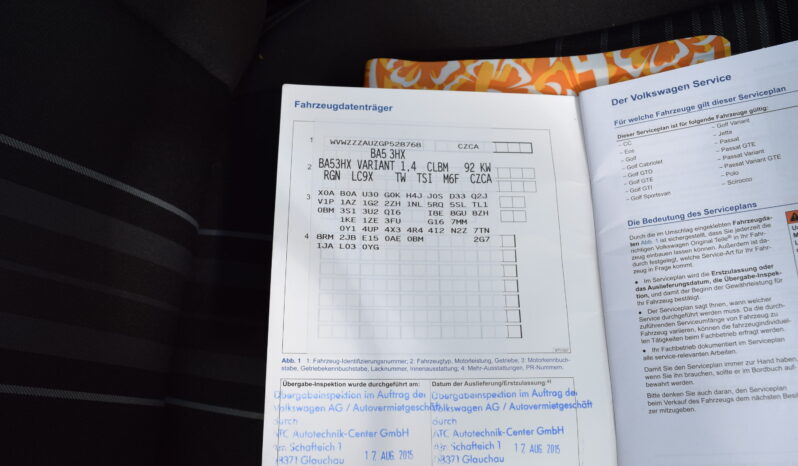 Fahrzeugdatenträger
1 WVWZZZAUZGP528768 CZCA
BA5 3HX
2 BA53HX VARIANT 1.4 CLBM 92 KW
RGN LC9X TW TSI M6F CZCA
3 X0A B0A U30 G0K H4J J0S D33 Q2J
V1P 1AZ 1G2 2ZH 1NL 5RQ 5SL TL1
0BM 3S1 3U2 QI6 I8E 8GU 8ZH
1KE 1ZE 3FU G16 7MM
0Y1 4UP 4X3 4R4 412 N2Z 7TN
4 8RM 2JB E15 0AE 0BM 2G7
1JA L03 0YG
Abb. 1 1: Fahrzeug-Identifizierungsnummer; 2: Fahrzeugtyp, Motorleistung, Getriebe; 3: Motorkennbuch-
stabe, Getriebekennbuchstabe, Lacknummer, Innenausstattung; 4: Mehr-Ausstattungen, PR-Nummern.
Übergabe-Inspektion wurde durchgeführt am:
Übergabeinspektion im Auftrag der
Volkswagen AG / Autovermietgeschäft
durch
ATC Autotechnik-Center GmbH
Am Schafteich 1
08371 Glauchau 17 AUG 2015
Datum der Auslieferung/Erstzulassung:
Übergabeinspektion im Auftrag der
Volkswagen AG / Autovermietgeschäft
durch
ATC Autotechnik-Center GmbH
Am Schafteich 1
08371 Glauchau 17 AUG 2015
Der Volkswagen Service
Für welche Fahrzeuge gilt dieser Serviceplan
Dieser Serviceplan ist für folgende Fahrzeuge gültig:
– CC
– Eos
– Golf
– Golf Cabriolet
– Golf GTD
– Golf GTE
– Golf GTI
– Golf Sportsvan
– Golf Variant
– Jetta
– Passat
– Passat GTE
– Passat Variant
– Passat Variant GTE
– Polo
– Scirocco
Die Bedeutung des Serviceplans
Durch die im Umschlag eingeklebten Fahrzeugda-
ten Abb. 1 ist sichergestellt, dass Sie jederzeit die
richtigen Volkswagen Original Teile® in Ihr Fahr-
zeug einbauen lassen können. Außerdem ist da-
durch festgelegt, welche Service-Art für Ihr Fahr-
zeug in Frage kommt.
● Im Serviceplan wird die Erstzulassung oder
das Auslieferungsdatum, die Übergabe-Inspek-
tion, und damit der Beginn der Gewährleistung für
Ihr Fahrzeug bestätigt.
● Der Serviceplan sagt Ihnen, wann welcher
Service durchgeführt werden muss. Da die durch-
zuführenden Serviceumfänge von Fahrzeug zu
Fahrzeug variieren, können die fahrzeugindividuel-
len Tätigkeiten beim Fachbetrieb erfragt werden.
● Ihr Fachbetrieb dokumentiert im Serviceplan
alle service-relevanten Arbeiten.
Damit Sie den Serviceplan immer zur Hand haben,
wenn Sie ihn brauchen, sollte er im Bordbuch auf-
bewahrt werden.
Bitte denken Sie auch daran, den Serviceplan
beim Verkauf des Fahrzeugs dem nächsten Besit-
zer mitzugeben.